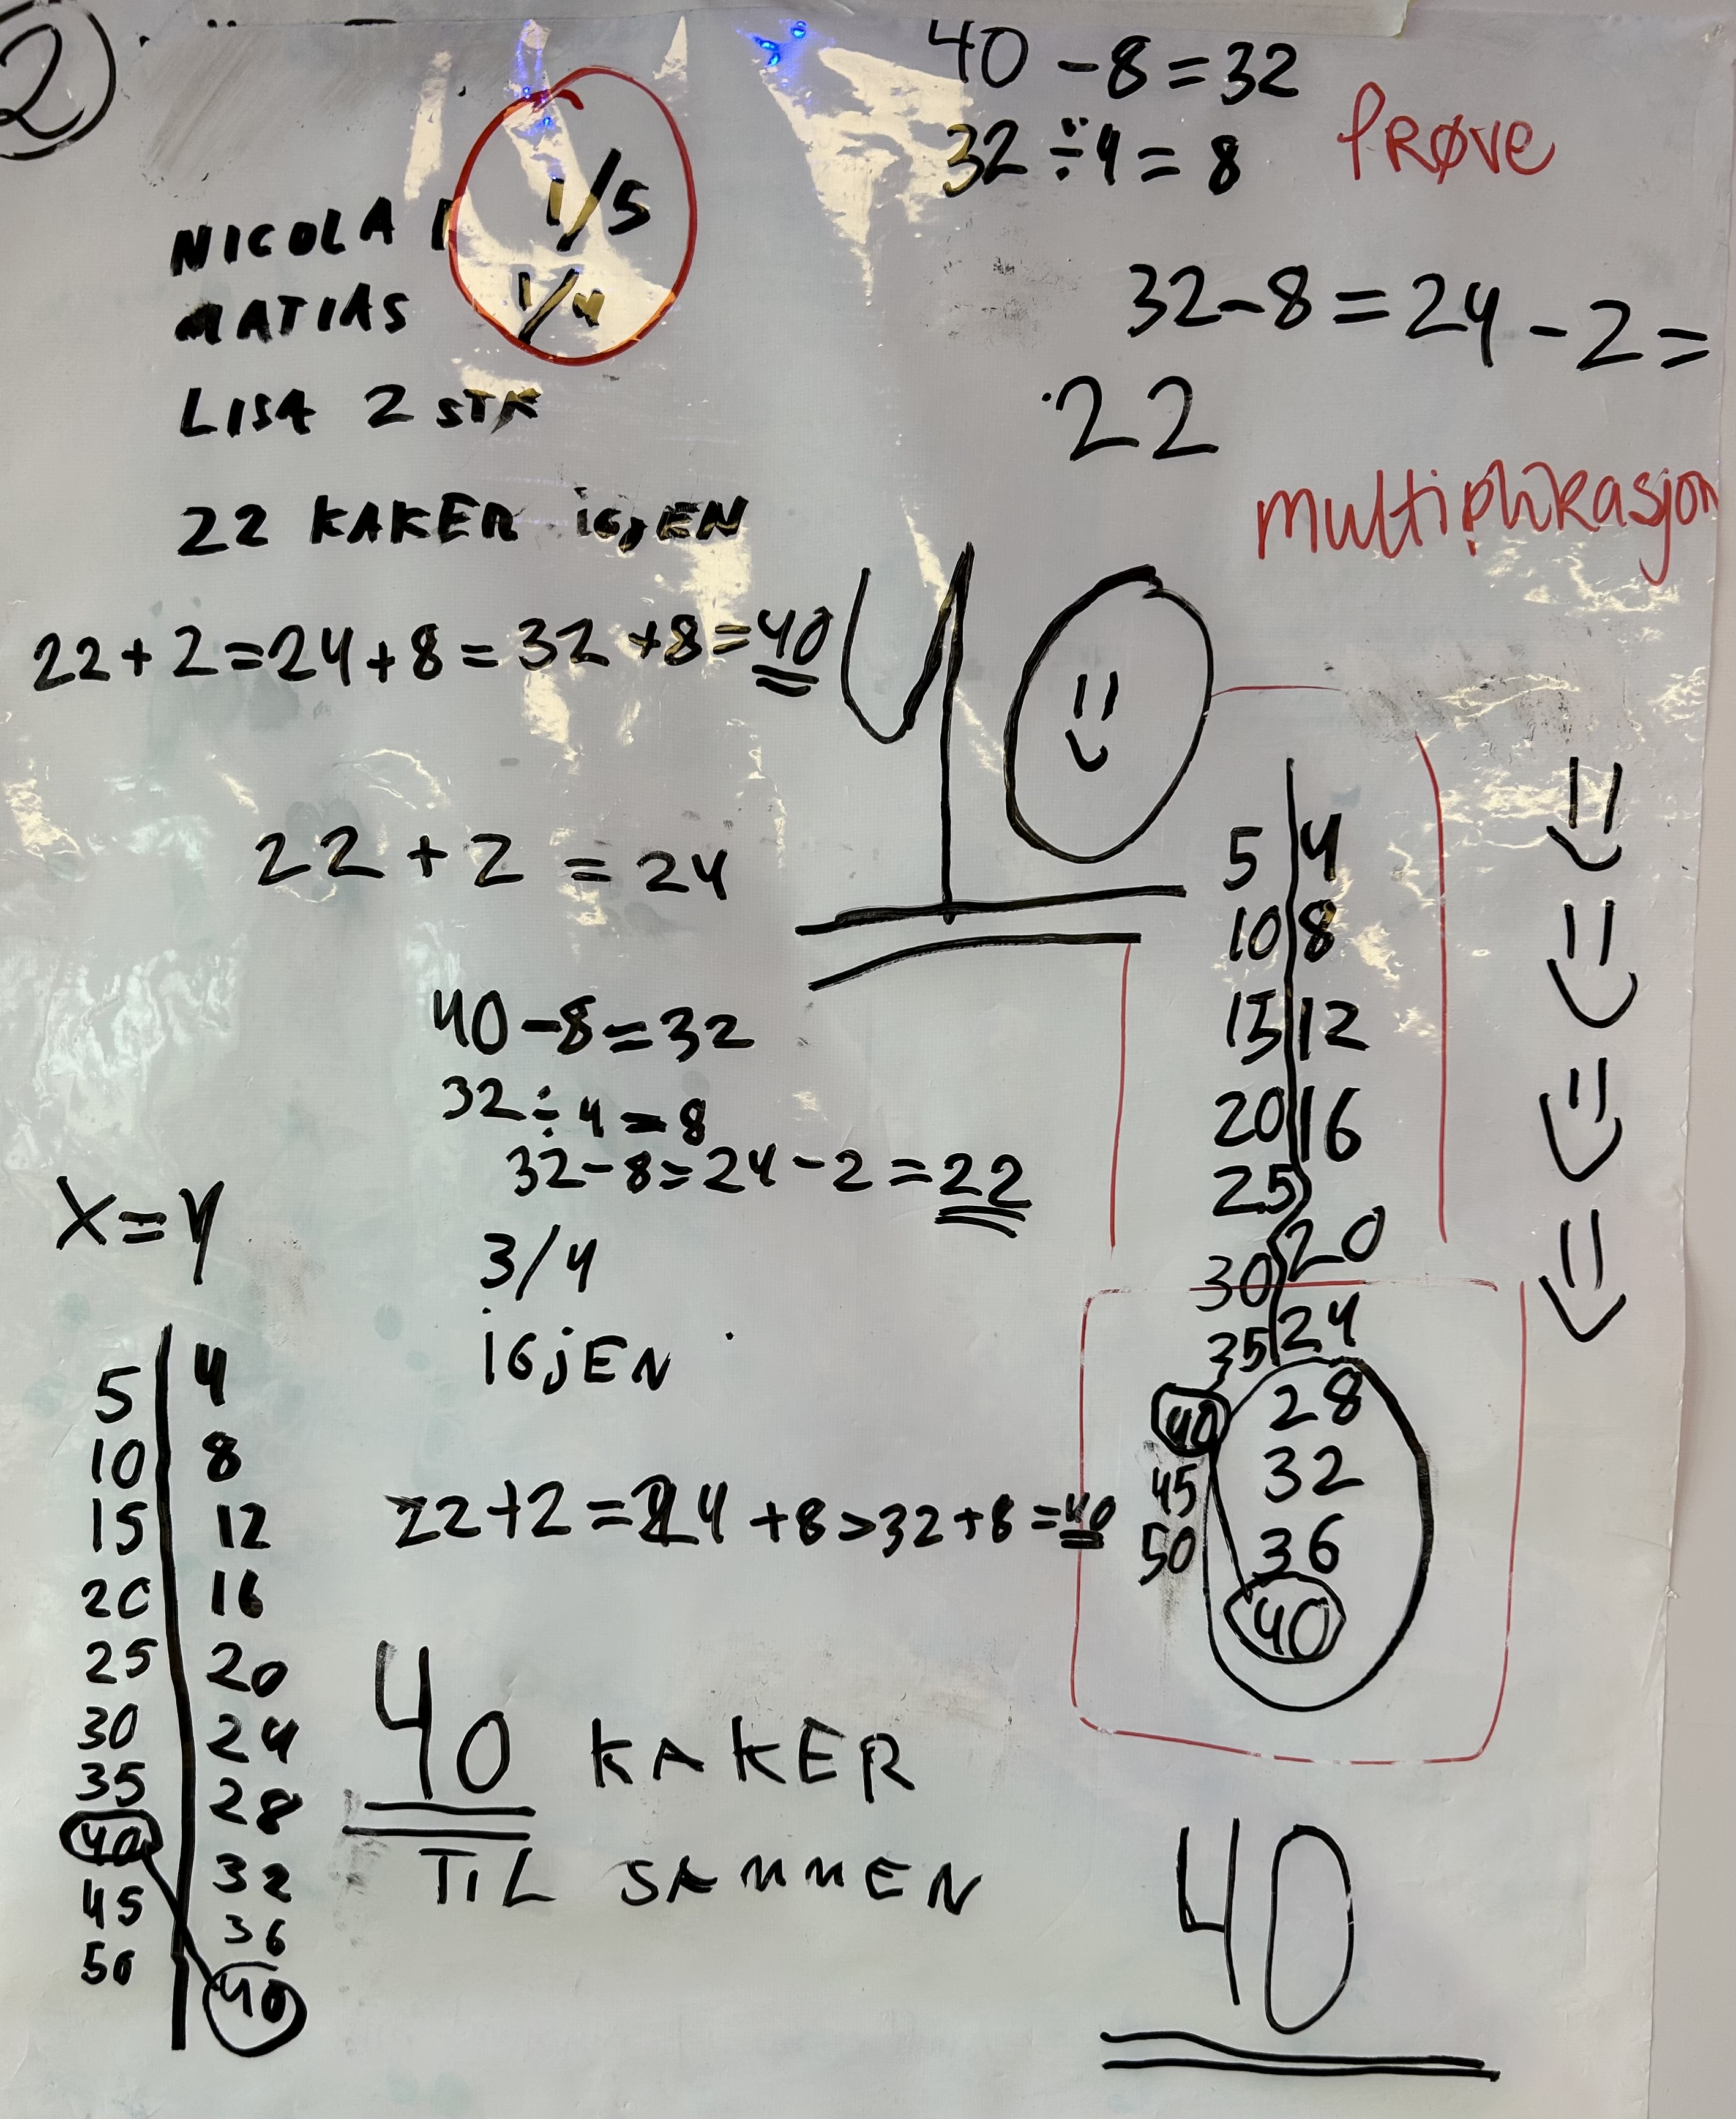 2
40 - 8 = 32
32 ÷ 4 = 8
PRØVE
NICOLAI 1/5
MATIAS 1/4
LISA 2 STK
22 KAKER iGjEN
32 - 8 = 24 - 2 =
22
multiplikasjon
22 + 2 = 24 + 8 = 32 + 8 = 40
40
22 + 2 = 24
40 - 8 = 32
32 ÷ 4 = 8
32 - 8 = 24 - 2 = 22
3/4
iGjEN
22 + 2 = 24 + 8 > 32 + 8 = 40
5 4
10 8
15 12
20 16
25 20
30 24
35 28
40 32
45 36
50 40
X = Y
5 4
10 8
15 12
20 16
25 20
30 24
35 28
40 32
45 36
50 40
40 KAKER
TIL SAMMEN
40